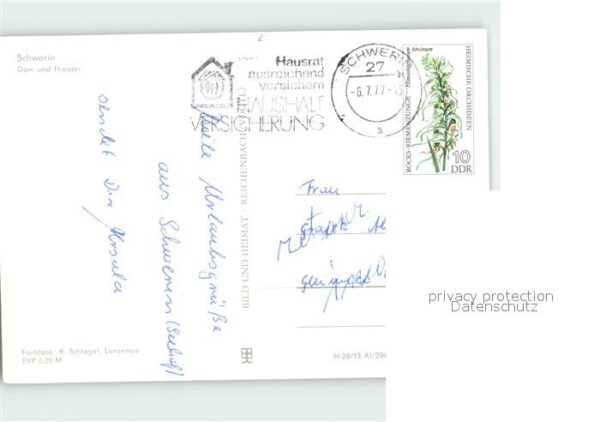 Schwerin
Dom und Theater
Hausrat
ausreichend
versichern
HAUSHALT
VERSICHERUNG
SCHWERIN
27
-6.7.77-
a
HEIMISCHE ORCHIDEEN
BOCKS-RIEMENZUNGE · Himantoglossum hircinum
10
DDR
BILD UND HEIMAT · REICHENBACH (VOGTL)
Urlaubsgrüße
aus Schwerin (Seehof)
sendet Dir Ursula
Frau
privacy protection
Datenschutz
Farbfoto: R. Schlegel, Lunzenau
EVP 0,20 M
III/26/13 A1/294